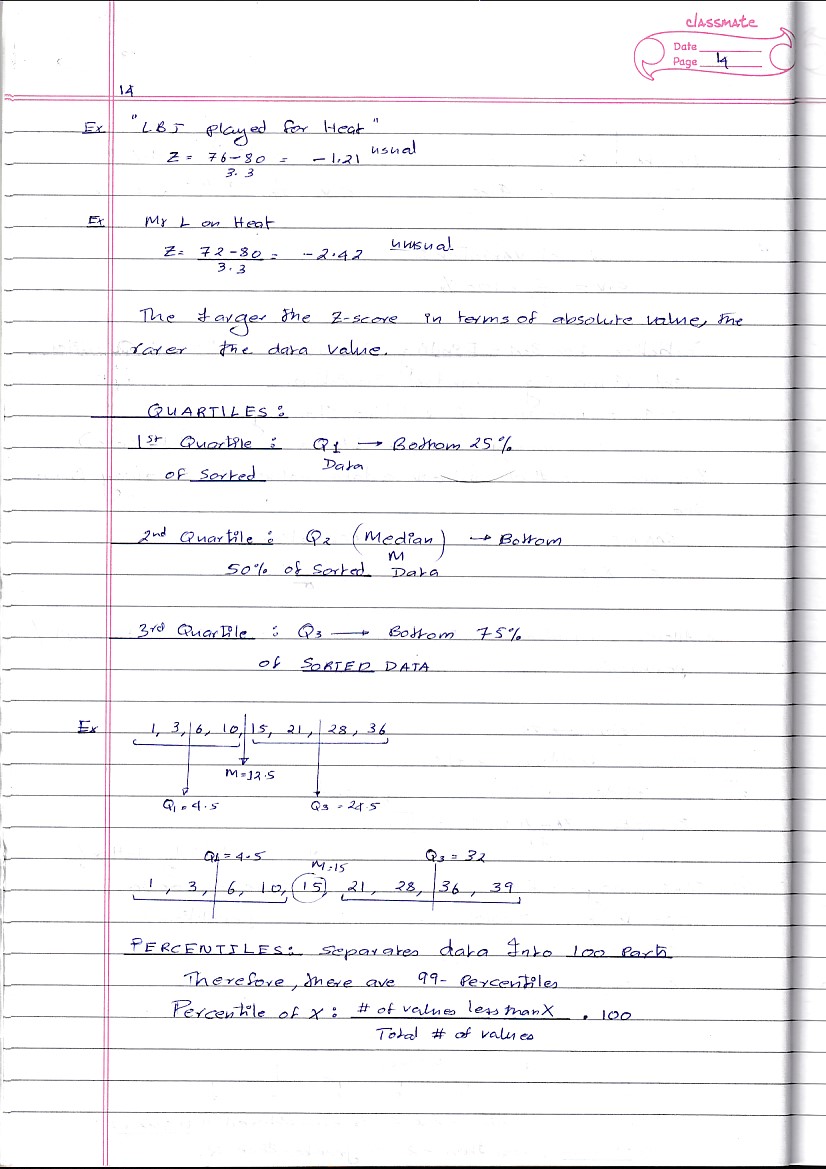 classmate
Date
Page 14
14
Ex "LBJ played for Heat"
Z = 76-80 = -1.21 usual
3.3
Ex Mr L on Heat
Z = 72-80 = -2.42 unusual
3.3
The larger the Z-score in terms of absolute value, the
rarer the data value.
QUARTILES:
1st Quartile: Q1 → Bottom 25%
of Sorted Data
2nd Quartile: Q2 (Median) → Bottom
M
50% of Sorted Data
3rd Quartile: Q3 → Bottom 75%
of SORTED DATA
Ex 1, 3, 6, 10, 15, 21, 28, 36
M=12.5
Q1=4.5 Q3=24.5
Q1=4.5 M=15 Q3=32
1, 3, 6, 10, 15, 21, 28, 36, 39
PERCENTILES: separates data Into 100 Parts
Therefore, there are 99-Percentiles
Percentile of X: # of values less than X . 100
Total # of values